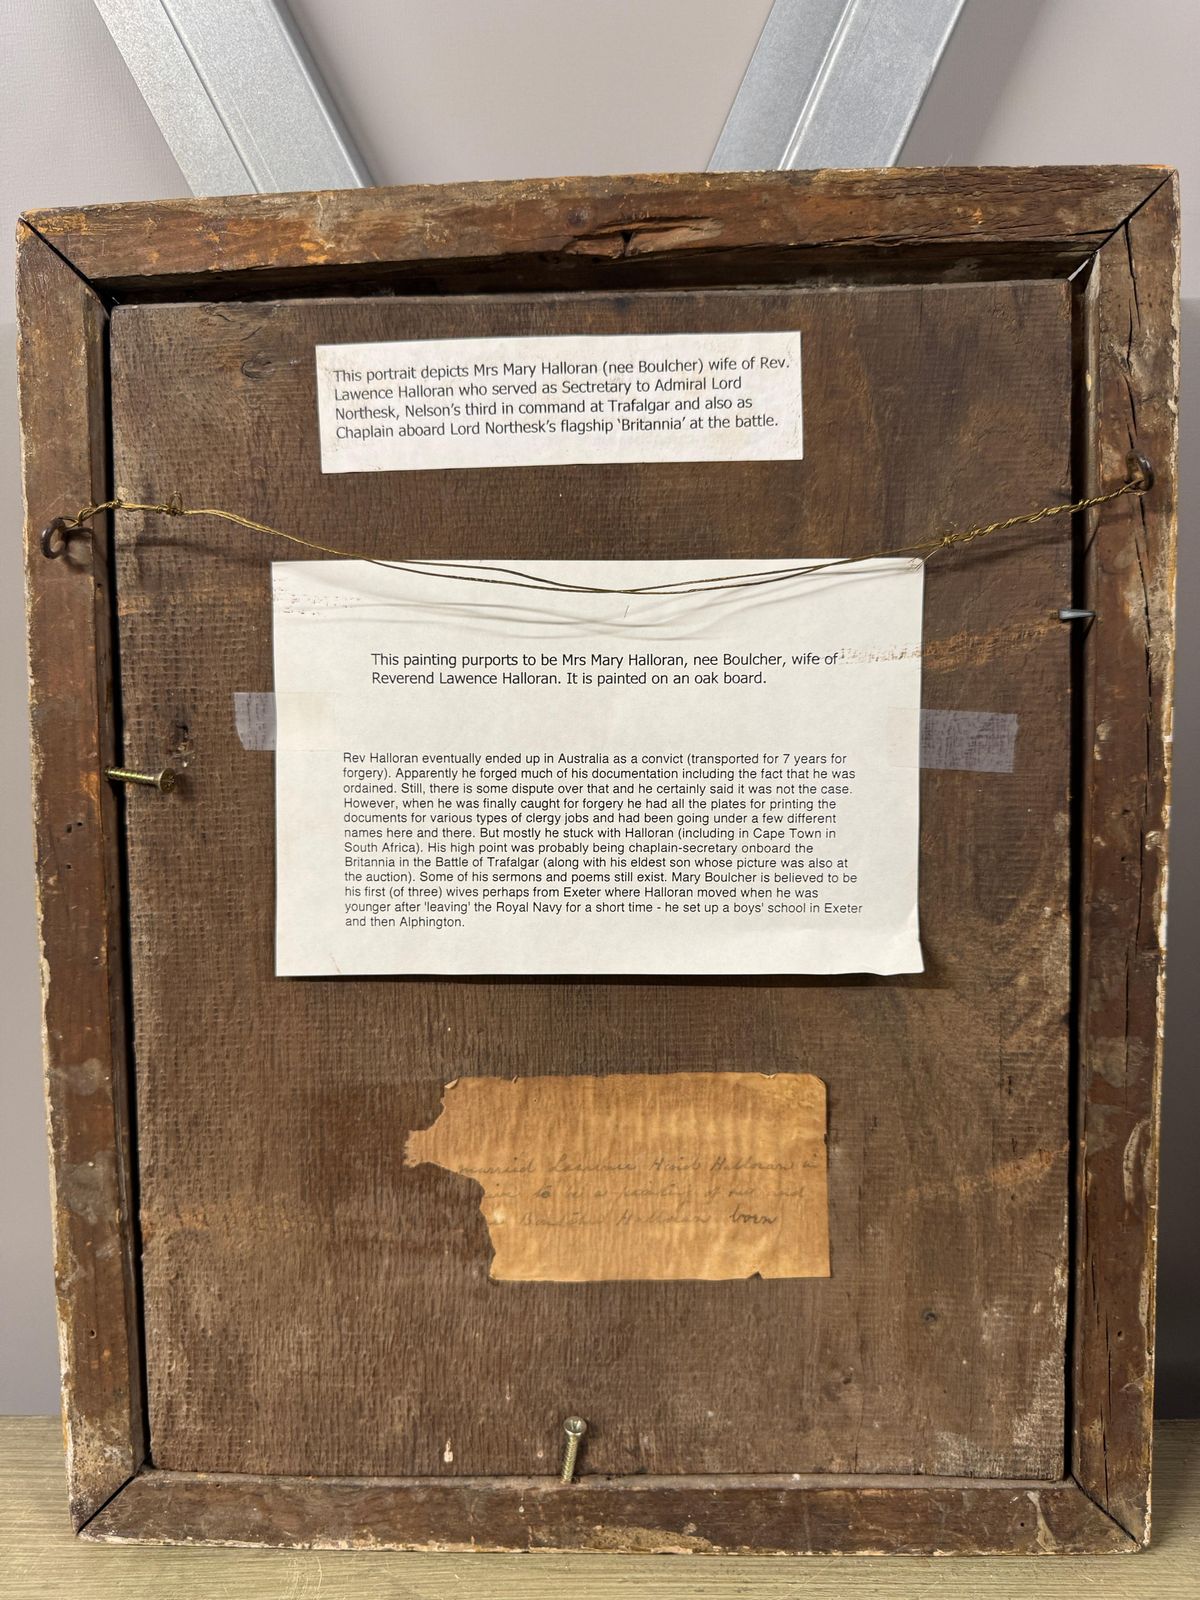 This portrait depicts Mrs Mary Halloran (nee Boulcher) wife of Rev.
Lawence Halloran who served as Sectretary to Admiral Lord
Northesk, Nelson's third in command at Trafalgar and also as
Chaplain aboard Lord Northesk's flagship 'Britannia' at the battle.
This painting purports to be Mrs Mary Halloran, nee Boulcher, wife of
Reverend Lawence Halloran. It is painted on an oak board.
Rev Halloran eventually ended up in Australia as a convict (transported for 7 years for
forgery). Apparently he forged much of his documentation including the fact that he was
ordained. Still, there is some dispute over that and he certainly said it was not the case.
However, when he was finally caught for forgery he had all the plates for printing the
documents for various types of clergy jobs and had been going under a few different
names here and there. But mostly he stuck with Halloran (including in Cape Town in
South Africa). His high point was probably being chaplain-secretary onboard the
Britannia in the Battle of Trafalgar (along with his eldest son whose picture was also at
the auction). Some of his sermons and poems still exist. Mary Boulcher is believed to be
his first (of three) wives perhaps from Exeter where Halloran moved when he was
younger after 'leaving' the Royal Navy for a short time - he set up a boys' school in Exeter
and then Alphington.
married Lawrence Hind Halloran in
to be a painting of
Boulcher Halloran born